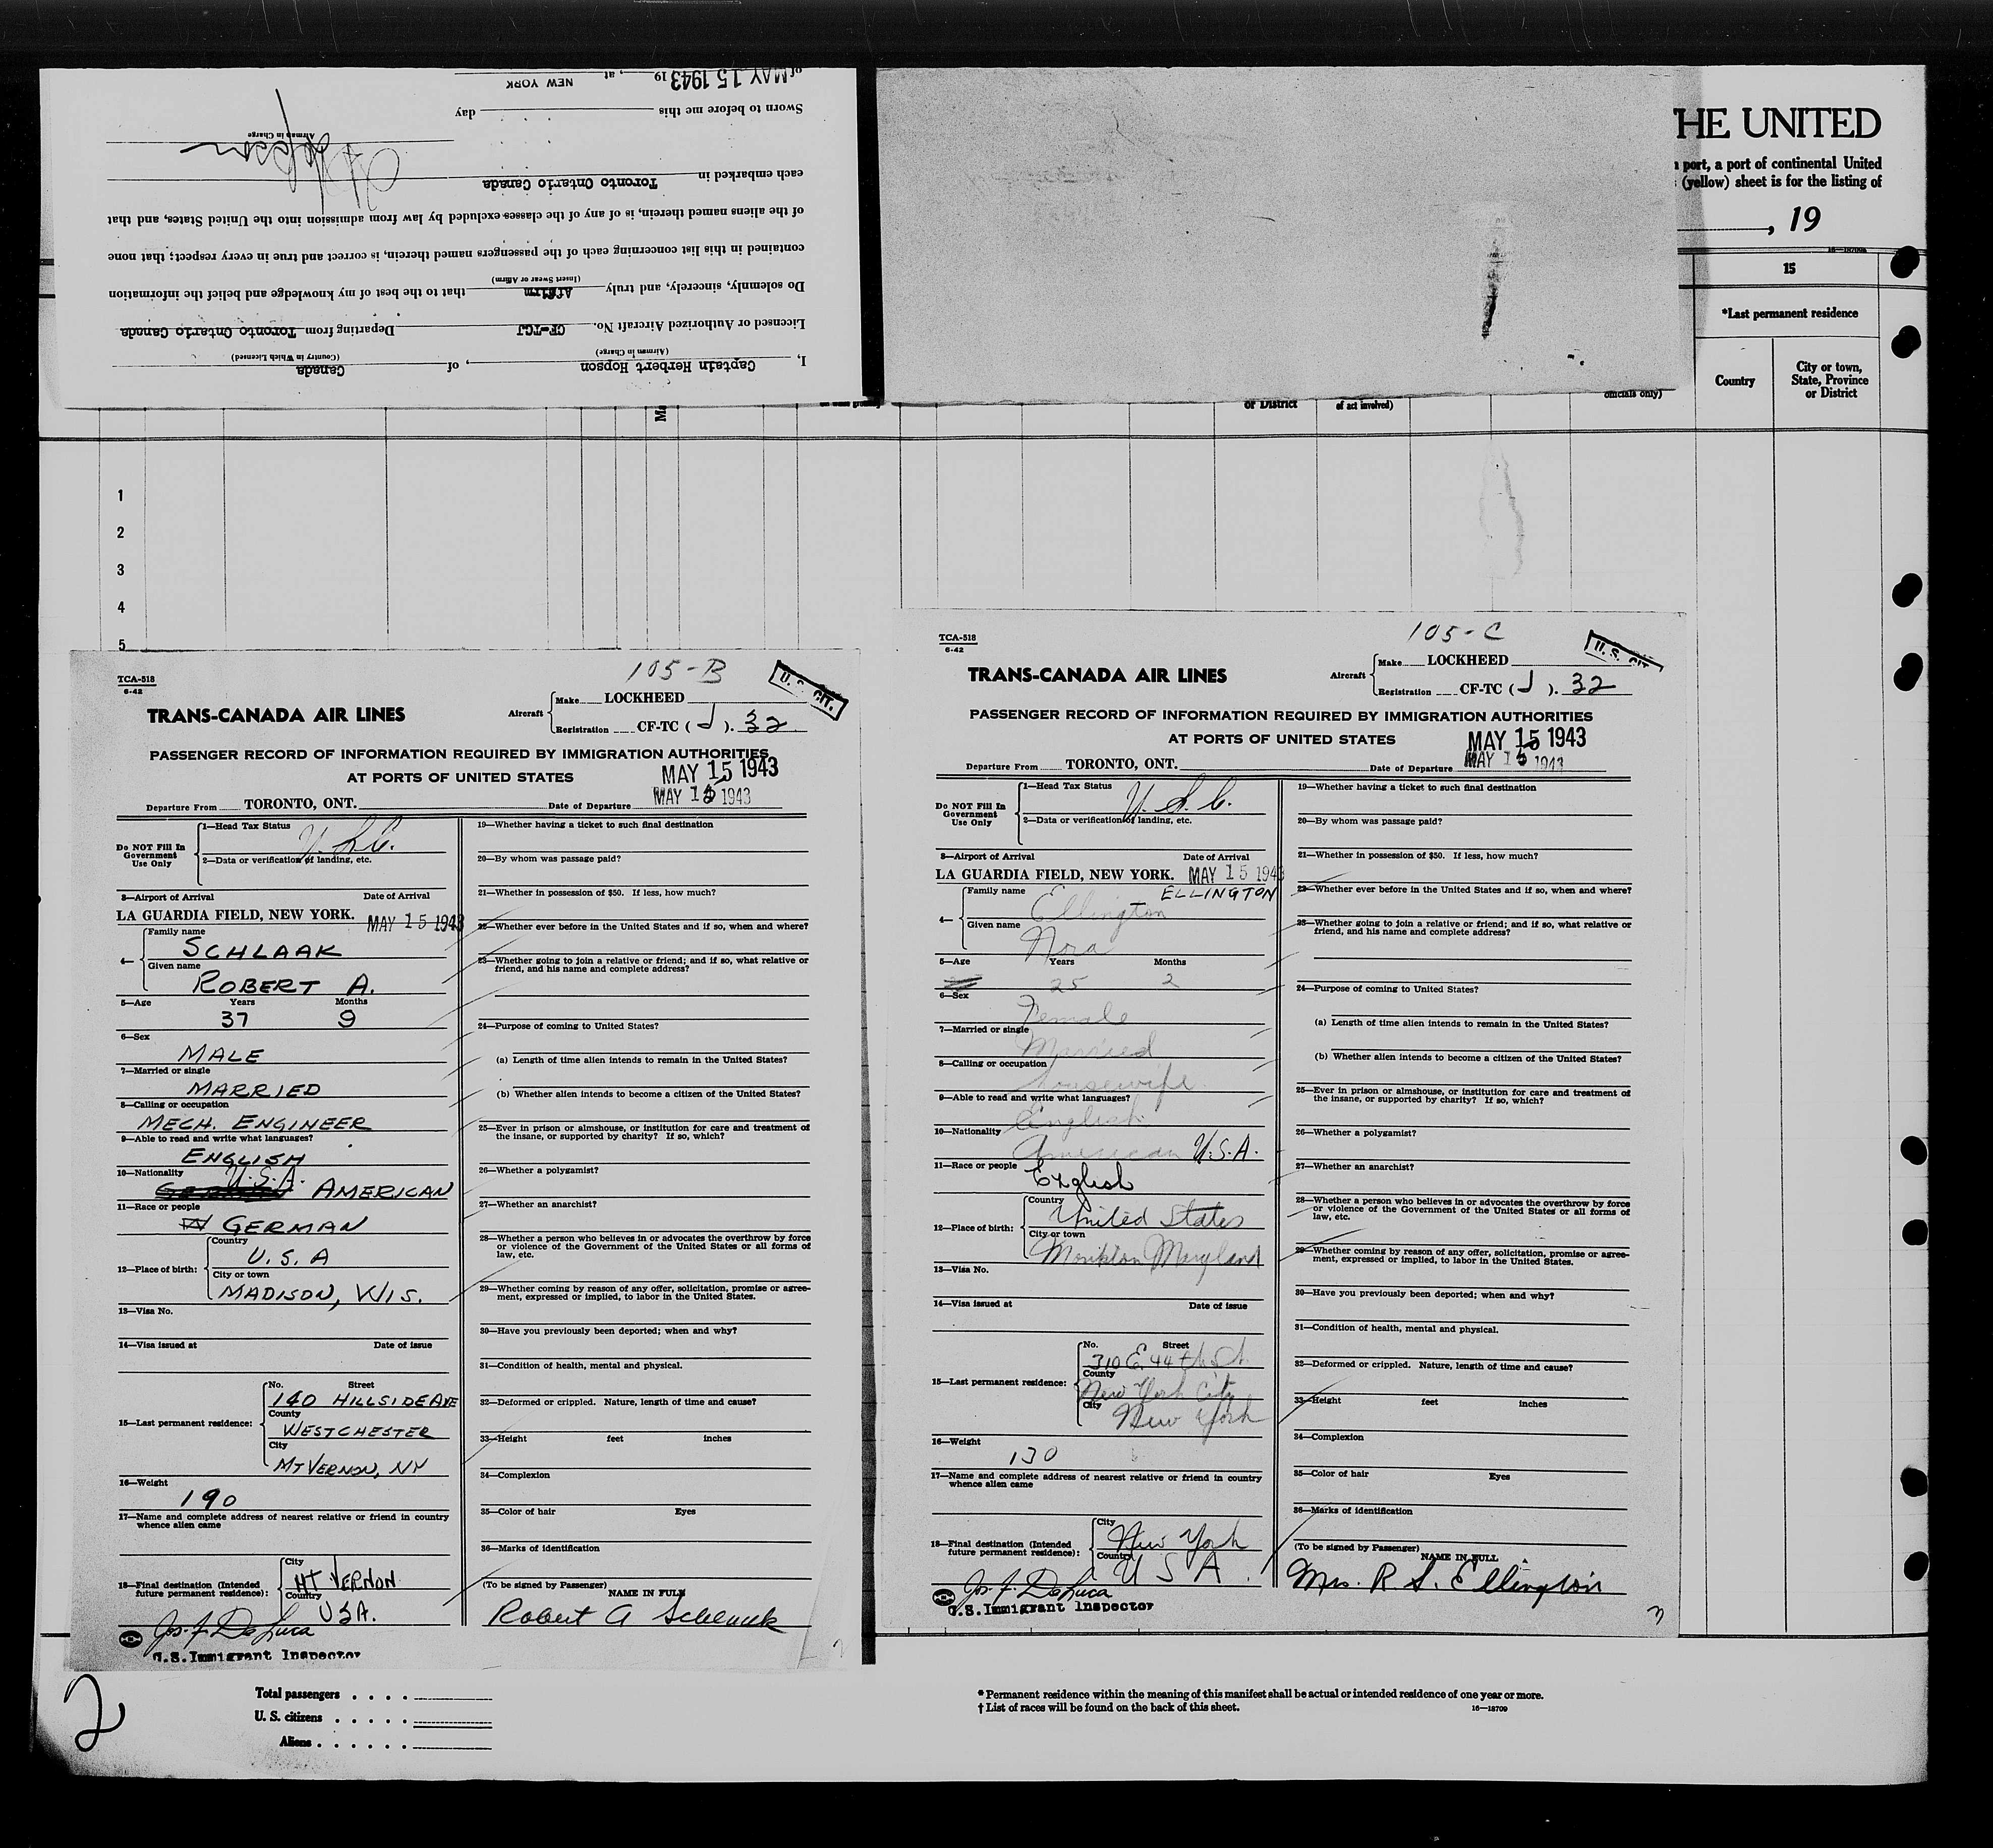 I, Captain Herbert Hopson, of Canada
(Airman in Charge) (Country in Which Licensed)
Licensed or Authorized Aircraft No. CF-TCJ Departing from Toronto Ontario Canada
Do solemnly, sincerely, and truly Affirm that to the best of my knowledge and belief the information
(Insert Swear or Affirm)
contained in this list concerning each of the passengers named therein, is correct and true in every respect; that none
of the aliens named therein, is of any of the classes excluded by law from admission into the United States, and that
each embarked in Toronto Ontario Canada
H Hopson
Airman in Charge
Sworn to before me this day
of MAY 15 1943 19 , at NEW YORK
HE UNITED
port, a port of continental United
(yellow) sheet is for the listing of
, 19
15
*Last permanent residence
Country
City or town,
State, Province
or District
or District
of act involved)
officials only)
1
2
3
4
5
TCA-518
6-42
105-B
U. S. CIT.
TRANS-CANADA AIR LINES
Aircraft
Make LOCKHEED
Registration CF-TC ( J ). 32
PASSENGER RECORD OF INFORMATION REQUIRED BY IMMIGRATION AUTHORITIES
AT PORTS OF UNITED STATES
MAY 15 1943
Departure From TORONTO, ONT. Date of Departure MAY 15 1943
Do NOT Fill In
Government
Use Only
1—Head Tax Status
U. S. C.
2—Data or verification of landing, etc.
3—Airport of Arrival Date of Arrival
LA GUARDIA FIELD, NEW YORK. MAY 15 1943
4—
Family name
SCHLAAK
Given name
ROBERT A.
5—Age Years Months
37 9
6—Sex
MALE
7—Married or single
MARRIED
8—Calling or occupation
MECH. ENGINEER
9—Able to read and write what languages?
ENGLISH
10—Nationality U.S.A.
AMERICAN
11—Race or people
GERMAN
12—Place of birth:
Country
U.S.A
City or town
MADISON, WIS.
13—Visa No.
14—Visa issued at Date of issue
15—Last permanent residence:
No. Street
140 HILLSIDE AVE
County
WESTCHESTER
City
MT VERNON, NY
16—Weight
190
17—Name and complete address of nearest relative or friend in country
whence alien came
18—Final destination (Intended
future permanent residence):
City
MT VERNON
Country
USA.
Jos. F. DeLuca
U.S.Immigrant Inspector
19—Whether having a ticket to such final destination
20—By whom was passage paid?
21—Whether in possession of $50. If less, how much?
22—Whether ever before in the United States and if so, when and where?
23—Whether going to join a relative or friend; and if so, what relative or
friend, and his name and complete address?
24—Purpose of coming to United States?
(a) Length of time alien intends to remain in the United States?
(b) Whether alien intends to become a citizen of the United States?
25—Ever in prison or almshouse, or institution for care and treatment of
the insane, or supported by charity? If so, which?
26—Whether a polygamist?
27—Whether an anarchist?
28—Whether a person who believes in or advocates the overthrow by force
or violence of the Government of the United States or all forms of
law, etc.
29—Whether coming by reason of any offer, solicitation, promise or agree-
ment, expressed or implied, to labor in the United States.
30—Have you previously been deported; when and why?
31—Condition of health, mental and physical.
32—Deformed or crippled. Nature, length of time and cause?
33—Height feet inches
34—Complexion
35—Color of hair Eyes
36—Marks of identification
(To be signed by Passenger) NAME IN FULL
Robert A Schlaak
TCA-518
6-42
105-C
U. S. CIT.
TRANS-CANADA AIR LINES
Aircraft
Make LOCKHEED
Registration CF-TC ( J ). 32
PASSENGER RECORD OF INFORMATION REQUIRED BY IMMIGRATION AUTHORITIES
AT PORTS OF UNITED STATES
MAY 15 1943
Departure From TORONTO, ONT. Date of Departure MAY 15 1943
Do NOT Fill In
Government
Use Only
1—Head Tax Status
U. S. C.
2—Data or verification of landing, etc.
3—Airport of Arrival Date of Arrival
LA GUARDIA FIELD, NEW YORK. MAY 15 1943
4—
Family name ELLINGTON
Ellington
Given name
Nora
5—Age Years Months
25 2
6—Sex
Female
7—Married or single
Married
8—Calling or occupation
housewife
9—Able to read and write what languages?
English
10—Nationality
American U.S.A.
11—Race or people
English
12—Place of birth:
Country
United States
City or town
Monkton Maryland
13—Visa No.
14—Visa issued at Date of issue
15—Last permanent residence:
No. Street
310 E. 44th St.
County
New York City
City
New York
16—Weight
130
17—Name and complete address of nearest relative or friend in country
whence alien came
18—Final destination (Intended
future permanent residence):
City
New York
Country
U S A.
Jos. F. DeLuca
U.S.Immigrant Inspector
19—Whether having a ticket to such final destination
20—By whom was passage paid?
21—Whether in possession of $50. If less, how much?
22—Whether ever before in the United States and if so, when and where?
23—Whether going to join a relative or friend; and if so, what relative or
friend, and his name and complete address?
24—Purpose of coming to United States?
(a) Length of time alien intends to remain in the United States?
(b) Whether alien intends to become a citizen of the United States?
25—Ever in prison or almshouse, or institution for care and treatment of
the insane, or supported by charity? If so, which?
26—Whether a polygamist?
27—Whether an anarchist?
28—Whether a person who believes in or advocates the overthrow by force
or violence of the Government of the United States or all forms of
law, etc.
29—Whether coming by reason of any offer, solicitation, promise or agree-
ment, expressed or implied, to labor in the United States.
30—Have you previously been deported; when and why?
31—Condition of health, mental and physical.
32—Deformed or crippled. Nature, length of time and cause?
33—Height feet inches
34—Complexion
35—Color of hair Eyes
36—Marks of identification
(To be signed by Passenger) NAME IN FULL
Mrs. R S. Ellington
3
2
Total passengers . . . .
U. S. citizens . . . . .
Aliens . . . . . .
* Permanent residence within the meaning of this manifest shall be actual or intended residence of one year or more.
† List of races will be found on the back of this sheet. 16—18709